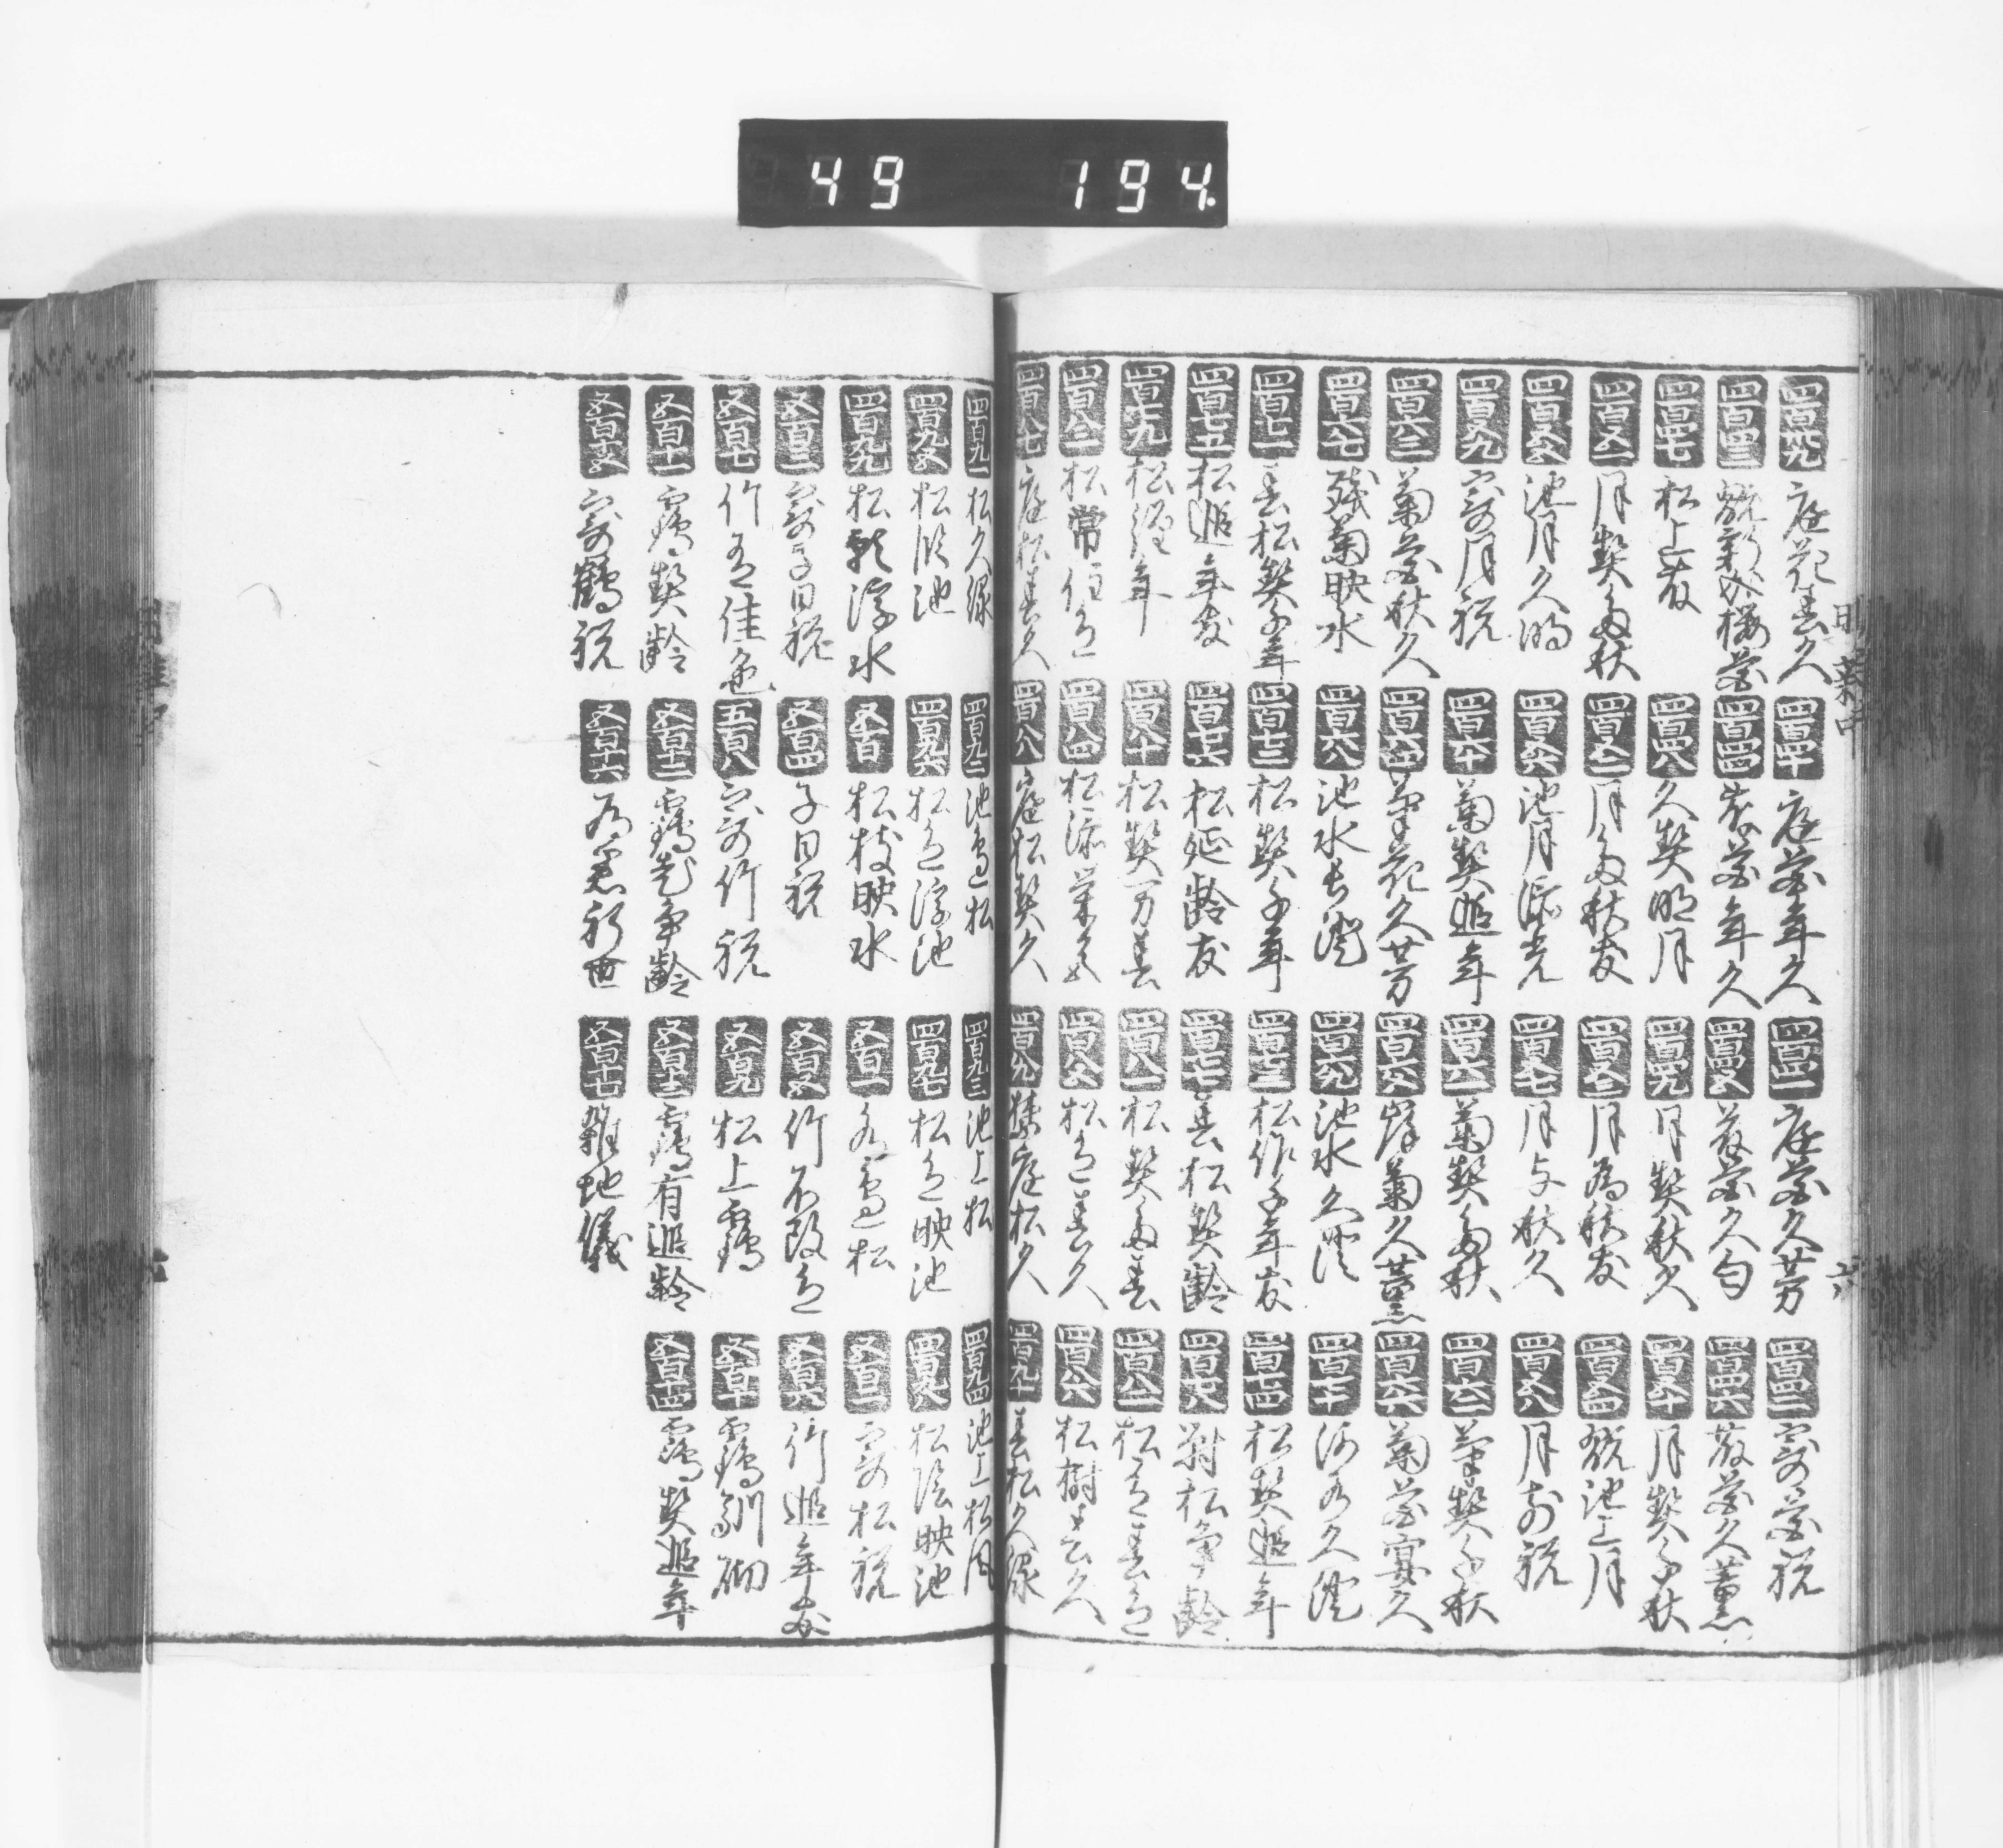 49 194
四百卅九 庭花春久 四百四十 庭花年久 四百四一 庭花久芳 四百四二 寄花祝
四百四三 花 四百四四 花年久 四百四五 花久匂 四百四六 花久薫
四百四七 松上 四百四八 久契明月 四百四九 月契秋久 四百五十 月契千秋
四百五一 月契多秋 四百五二 月多秋友 四百五三 月為秋友 四百五四 翫池上月
四百五五 池月久明 四百五六 池月添光 四百五七 月与秋久 四百五八 月前祝
四百五九 寄月祝 四百六十 菊契遐年 四百六一 菊契多秋 四百六二 菊契千秋
四百六三 菊花秋久 四百六四 菊花久芳 四百六五 岸菊久薫 四百六六 菊花宴久
四百六七 残菊映水 四百六八 池水長澄 四百六九 池水久澄 四百七十 河水久澄
四百七一 春松契千年 四百七二 松契千年 四百七三 松作千年友 四百七四 松契遐年
四百七五 松遐年友 四百七六 松延齢友 四百七七 春松契齢 四百七八 対松争齢
四百七九 松経年 四百八十 松契万春 四百八一 松契多春 四百八二 松色春色
四百八三 松常住色 四百八四 松添栄色 四百八五 松色春久 四百八六 松樹春久
四百八七 庭松春久 四百八八 庭松契久 四百八九 禁庭松久 四百九十 春松久緑
四百九一 松久緑 四百九二 池辺松 四百九三 池上松 四百九四 池上松風
四百九五 松臨池 四百九六 松色浮池 四百九七 松色映池 四百九八 松陰映池
四百九九 松影浮水 五百 松枝映水 五百一 水辺松 五百二 寄松祝
五百三 寄子日祝 五百四 子日祝 五百五 竹不改色 五百六 竹遐年友
五百七 竹有佳色 五百八 寄竹祝 五百九 松上靏 五百十 靏馴砌
五百十一 靏契齢 五百十二 靏争齢 五百十三 靏有遐齢 五百十四 靏契遐年
五百十五 寄鶴祝 五百十六 為君祈世 五百十七 雑地儀